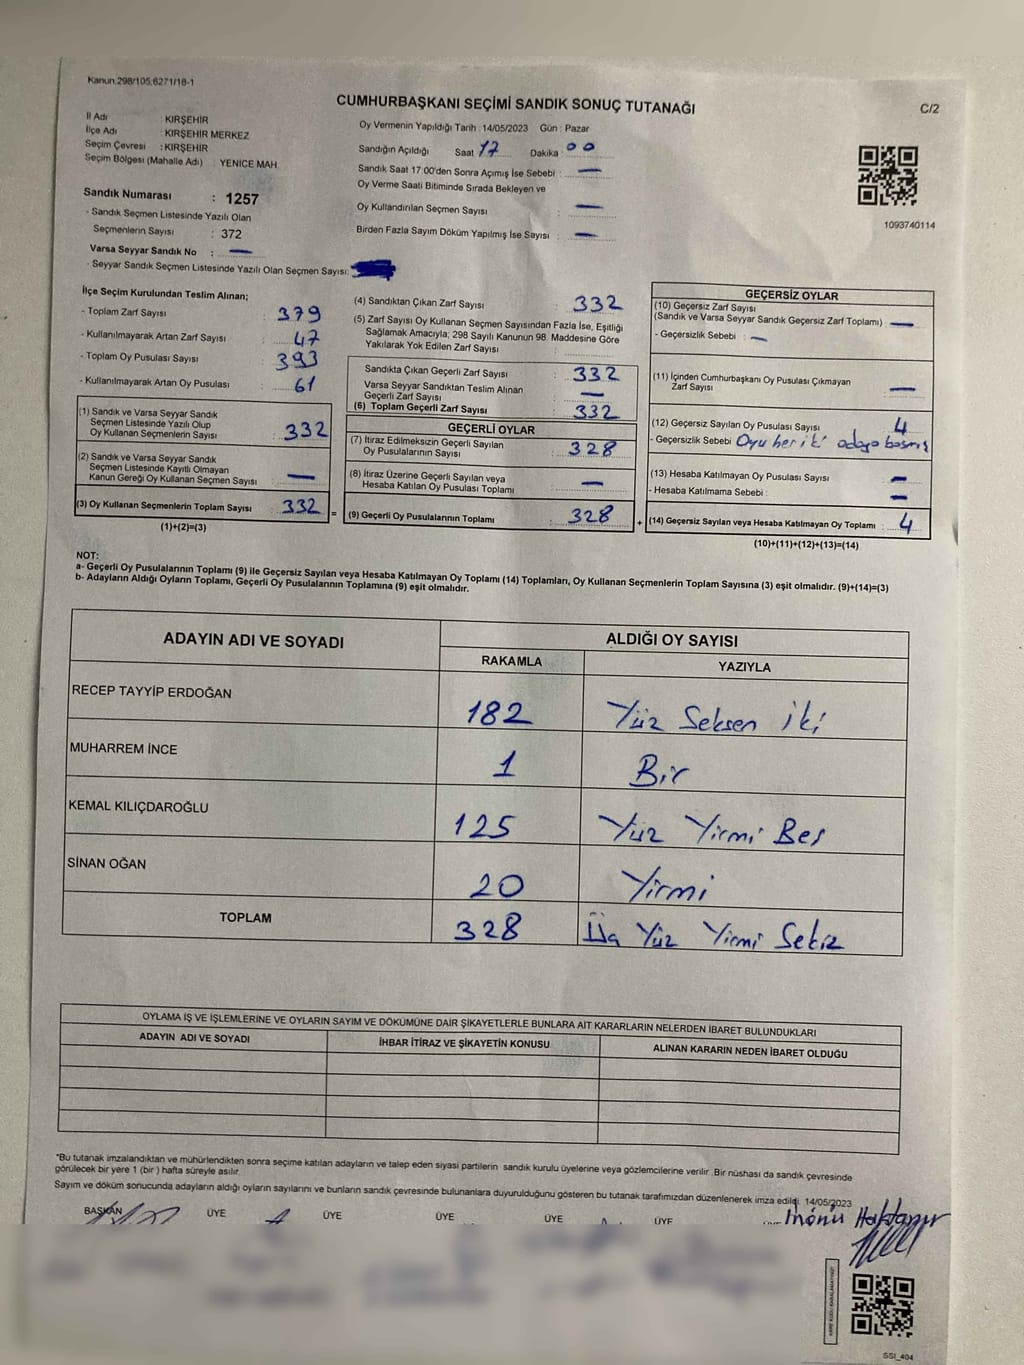 Kanun.298/105;6271/18-1
CUMHURBAŞKANI SEÇİMİ SANDIK SONUÇ TUTANAĞI
C/2
İl Adı KIRŞEHİR
İlçe Adı : KIRŞEHİR MERKEZ
Seçim Çevresi : KIRŞEHİR
Seçim Bölgesi (Mahalle Adı) : YENİCE MAH.
Sandık Numarası : 1257
- Sandık Seçmen Listesinde Yazılı Olan
Seçmenlerin Sayısı : 372
Varsa Seyyar Sandık No : —
- Seyyar Sandık Seçmen Listesinde Yazılı Olan Seçmen Sayısı:
Oy Vermenin Yapıldığı Tarih : 14/05/2023 Gün : Pazar
Sandığın Açıldığı Saat 17 Dakika : 00
Sandık Saat 17.00'den Sonra Açımış İse Sebebi : —
Oy Verme Saati Bitiminde Sırada Bekleyen ve
Oy Kullandırılan Seçmen Sayısı : —
Birden Fazla Sayım Döküm Yapılmış İse Sayısı : —
1093740114
İlçe Seçim Kurulundan Teslim Alınan;
- Toplam Zarf Sayısı : 379
- Kullanılmayarak Artan Zarf Sayısı : 47
- Toplam Oy Pusulası Sayısı : 393
- Kullanılmayarak Artan Oy Pusulası : 61
(1) Sandık ve Varsa Seyyar Sandık
Seçmen Listesinde Yazılı Olup
Oy Kullanan Seçmenlerin Sayısı : 332
(2) Sandık ve Varsa Seyyar Sandık
Seçmen Listesinde Kayıtlı Olmayan
Kanun Gereği Oy Kullanan Seçmen Sayısı : —
(3) Oy Kullanan Seçmenlerin Toplam Sayısı : 332 =
(1)+(2)=(3)
(4) Sandıktan Çıkan Zarf Sayısı : 332
(5) Zarf Sayısı Oy Kullanan Seçmen Sayısından Fazla İse, Eşitliği
Sağlamak Amacıyla; 298 Sayılı Kanunun 98. Maddesine Göre
Yakılarak Yok Edilen Zarf Sayısı :
Sandıkta Çıkan Geçerli Zarf Sayısı : 332
Varsa Seyyar Sandıktan Teslim Alınan
Geçerli Zarf Sayısı : —
(6) Toplam Geçerli Zarf Sayısı : 332
GEÇERLİ OYLAR
(7) İtiraz Edilmeksizin Geçerli Sayılan
Oy Pusulalarının Sayısı : 328
(8) İtiraz Üzerine Geçerli Sayılan veya
Hesaba Katılan Oy Pusulası Toplamı : —
(9) Geçerli Oy Pusulalarının Toplamı : 328 +
GEÇERSİZ OYLAR
(10) Geçersiz Zarf Sayısı
(Sandık ve Varsa Seyyar Sandık Geçersiz Zarf Toplamı) : —
- Geçersizlik Sebebi : —
(11) İçinden Cumhurbaşkanı Oy Pusulası Çıkmayan
Zarf Sayısı : —
(12) Geçersiz Sayılan Oy Pusulası Sayısı : 4
- Geçersizlik Sebebi : Oyu her iki adaya basmış
(13) Hesaba Katılmayan Oy Pusulası Sayısı : —
- Hesaba Katılmama Sebebi : —
(14) Geçersiz Sayılan veya Hesaba Katılmayan Oy Toplamı : 4
(10)+(11)+(12)+(13)=(14)
NOT:
a- Geçerli Oy Pusulalarının Toplamı (9) ile Geçersiz Sayılan veya Hesaba Katılmayan Oy Toplamı (14) Toplamları, Oy Kullanan Seçmenlerin Toplam Sayısına (3) eşit olmalıdır. (9)+(14)=(3)
b- Adayların Aldığı Oyların Toplamı, Geçerli Oy Pusulalarının Toplamına (9) eşit olmalıdır.
ADAYIN ADI VE SOYADI ALDIĞI OY SAYISI
RAKAMLA YAZIYLA
RECEP TAYYİP ERDOĞAN 182 Yüz Seksen İki
MUHARREM İNCE 1 Bir
KEMAL KILIÇDAROĞLU 125 Yüz Yirmi Beş
SİNAN OĞAN 20 Yirmi
TOPLAM 328 Üç Yüz Yirmi Sekiz
OYLAMA İŞ VE İŞLEMLERİNE VE OYLARIN SAYIM VE DÖKÜMÜNE DAİR ŞİKAYETLERLE BUNLARA AİT KARARLARIN NELERDEN İBARET BULUNDUKLARI
ADAYIN ADI VE SOYADI İHBAR İTİRAZ VE ŞİKAYETİN KONUSU ALINAN KARARIN NEDEN İBARET OLDUĞU
*Bu tutanak imzalandıktan ve mühürlendikten sonra seçime katılan adayların ve talep eden siyasi partilerin sandık kurulu üyelerine veya gözlemcilerine verilir .Bir nüshası da sandık çevresinde
görülecek bir yere 1 (bir ) hafta süreyle asılır.
Sayım ve döküm sonucunda adayların aldığı oyların sayılarını ve bunların sandık çevresinde bulunanlara duyurulduğunu gösteren bu tutanak tarafımızdan düzenlenerek imza edildi. 14/05/2023
BAŞKAN ÜYE ÜYE ÜYE ÜYE ÜYE
SSI_404